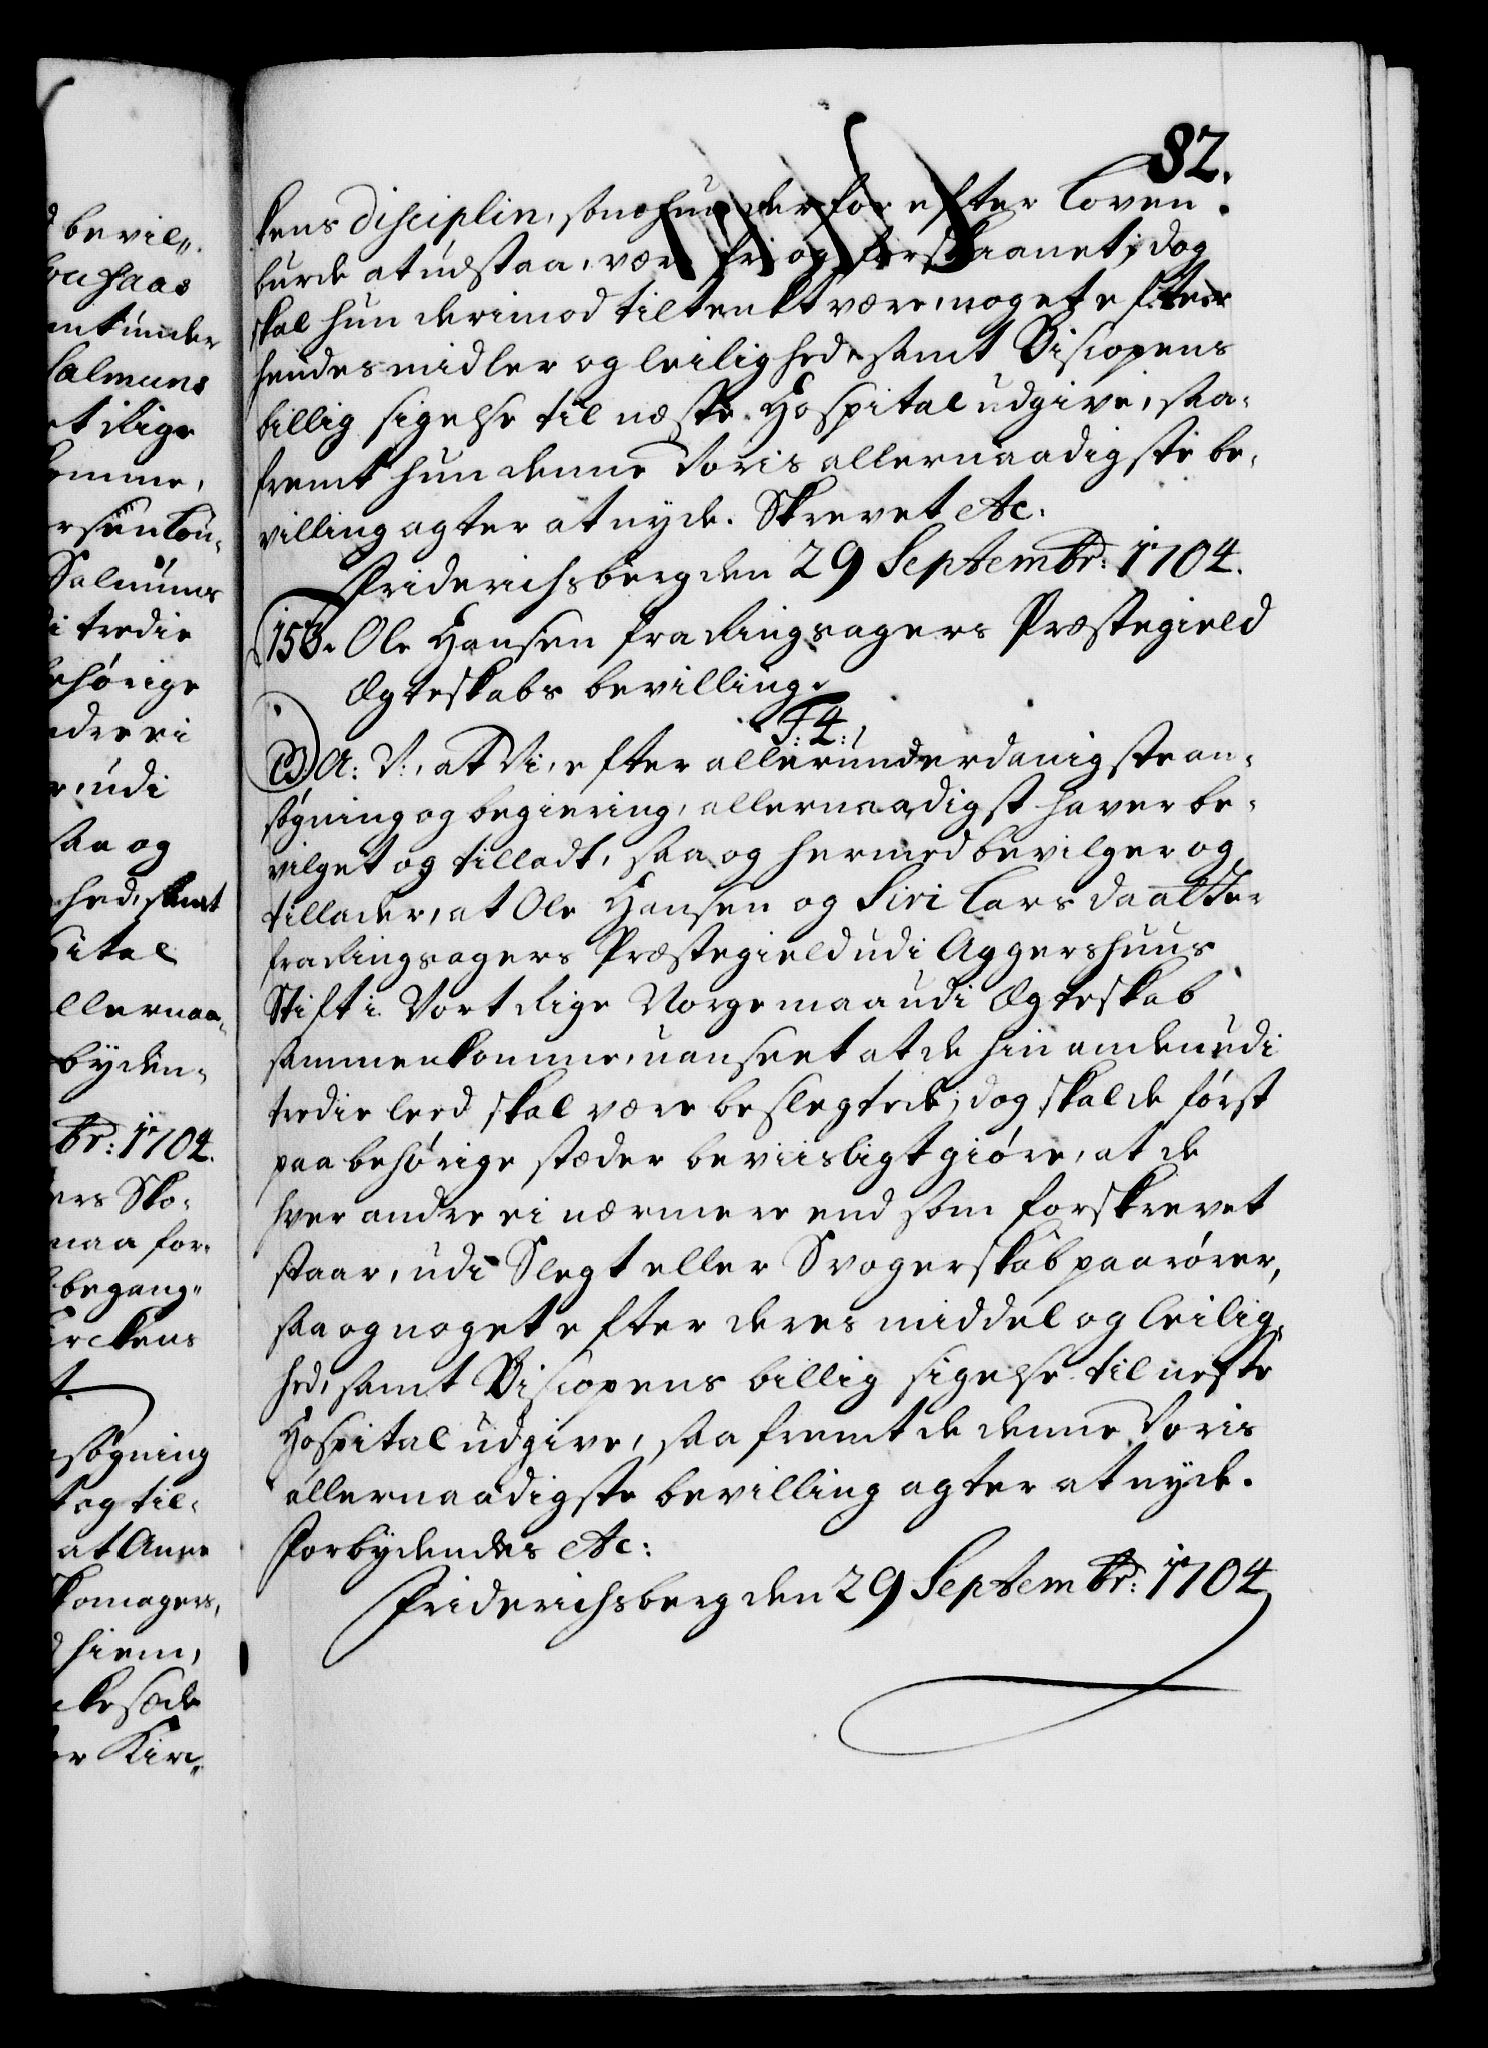 82.
kens disciplin, som hun derfor efter Loven
burde at udstaa, være fri og forskaanet; dog
skal hun derimod tiltenkt være, noget efter
hendes midler og leilighed, samt Biscopens
billig sigelse til næste Hospital udgive, saa-
fremt hun denne Voris allernaadigste be-
villing agter at nyde. Skrevet etc.
Friderichsberg den 29 Septembr: 1704.
153. Ole Hansen fra Ringsagers Præstegield
Ægteskabs bevilling.
F: 4:
G. A: V:, at Vi, efter allerunderdanigste an-
søgning og begiering, allernaadigst haver be-
vilget og tilladt, saa og hermed bevilger og
tillader, at Ole Hansen og Siri Lars daatter
fra Ringsagers Præstegield udi Aggershuus
Stift i Vort Rige Norge maa udi Ægteskab
sammenkomme, uanseet at de hin anden udi
tredie leed skal være beslegtede; dog skal de først
paa behørige stæder beviisligt giøre, at de
hver andre ei nærmere end som forskrevet
staar, udi Slegt eller Svogerskab paarører,
saa og noget efter deres middel og leilig-
hed, samt Biscopens billig sigelse til neste
Hospital udgive, saa fremt de denne Voris
allernaadigste bevilling agter at nyde.
Forbydendes etc:
Friderichsberg den 29 Septembr: 1704